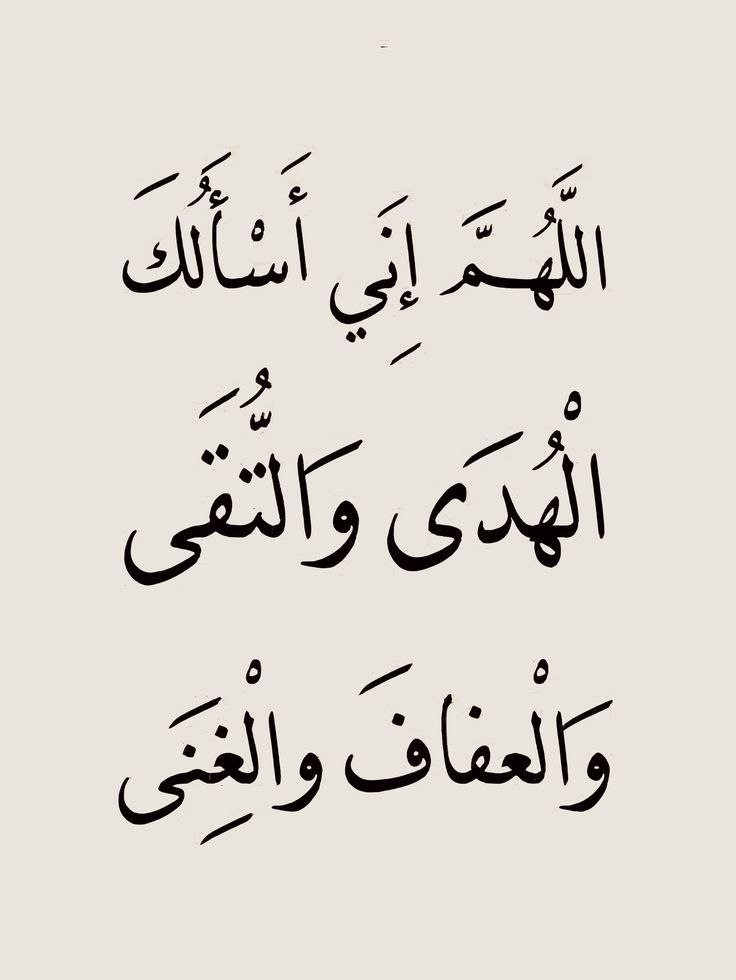 اللَّهُمَّ إِنَي أَسْأَلُكَ
الْهُدَى وَالتُّقَى
وَالْعفافَ والْغِنَى